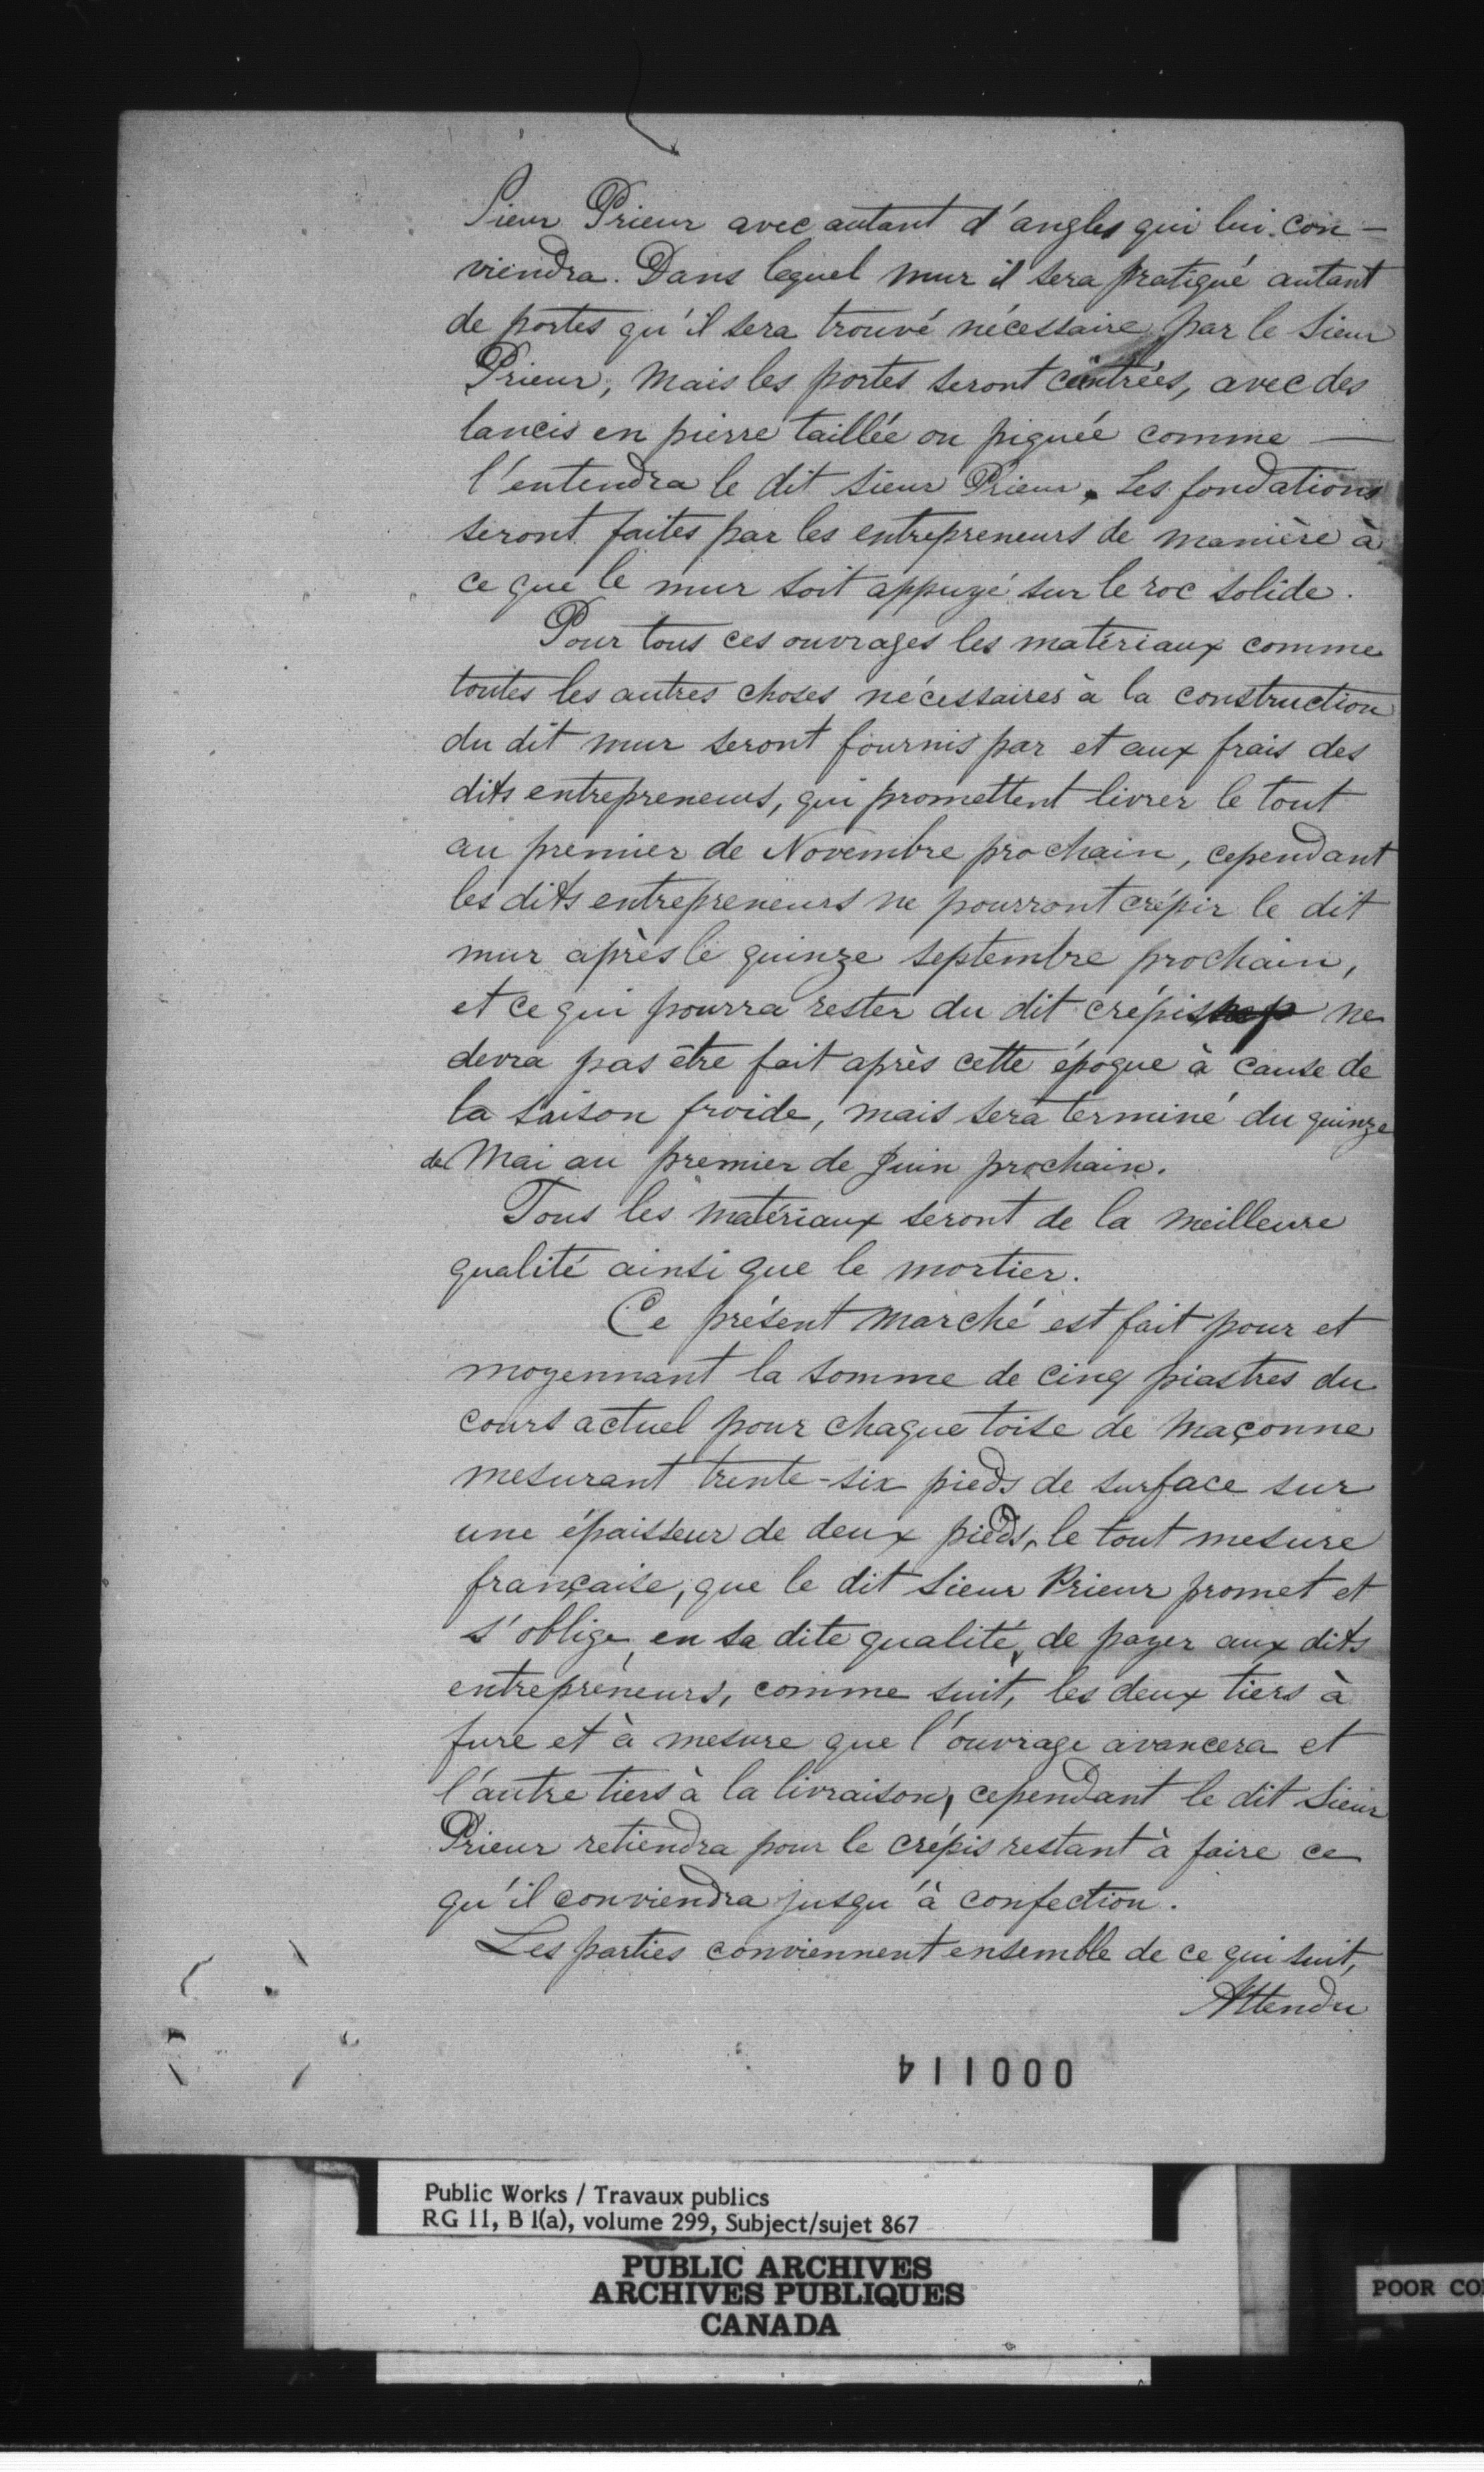 Sieur Prieur avec autant d'angles qui lui con-
viendra. Dans lequel mur il sera pratiqué autant
de portes qu'il sera trouvé nécessaire par le Sieur
Prieur, mais les portes seront cintrées, avec des
lancis en pierre taillée ou piquée comme —
l'entendra le dit Sieur Prieur. Les fondations
seront faites par les entrepreneurs de manière à
ce que le mur soit appuyé sur le roc solide.
Pour tous ces ouvrages les matériaux comme
toutes les autres choses nécessaires à la construction
du dit mur seront fournis par et aux frais des
dits entrepreneurs, qui promettent livrer le tout
au premier de Novembre prochain, cependant
les dits entrepreneurs ne pourront crépir le dit
mur après le quinze septembre prochain,
et ce qui pourra rester du dit crépis ne
devra pas être fait après cette époque à cause de
la saison froide, mais sera terminé du quinze
de Mai au premier de Juin prochain.
Tous les matériaux seront de la meilleure
qualité ainsi que le mortier.
Ce présent marché est fait pour et
moyennant la somme de cinq piastres du
cours actuel pour chaque toise de maçonne
mesurant trente-six pieds de surface sur
une épaisseur de deux pieds, le tout mesure
française, que le dit Sieur Prieur promet et
s'oblige, en sa dite qualité, de payer aux dits
entrepreneurs, comme suit, les deux tiers à
fure et à mesure que l'ouvrage avancera et
l'autre tiers à la livraison, cependant le dit Sieur
Prieur retiendra pour le crépis restant à faire ce
qu'il conviendra jusqu'à confection.
Les parties conviennent ensemble de ce qui suit,
Attendu
000114
Public Works / Travaux publics
RG 11, B 1(a), volume 299, Subject/sujet 867
PUBLIC ARCHIVES
ARCHIVES PUBLIQUES
CANADA
POOR CO